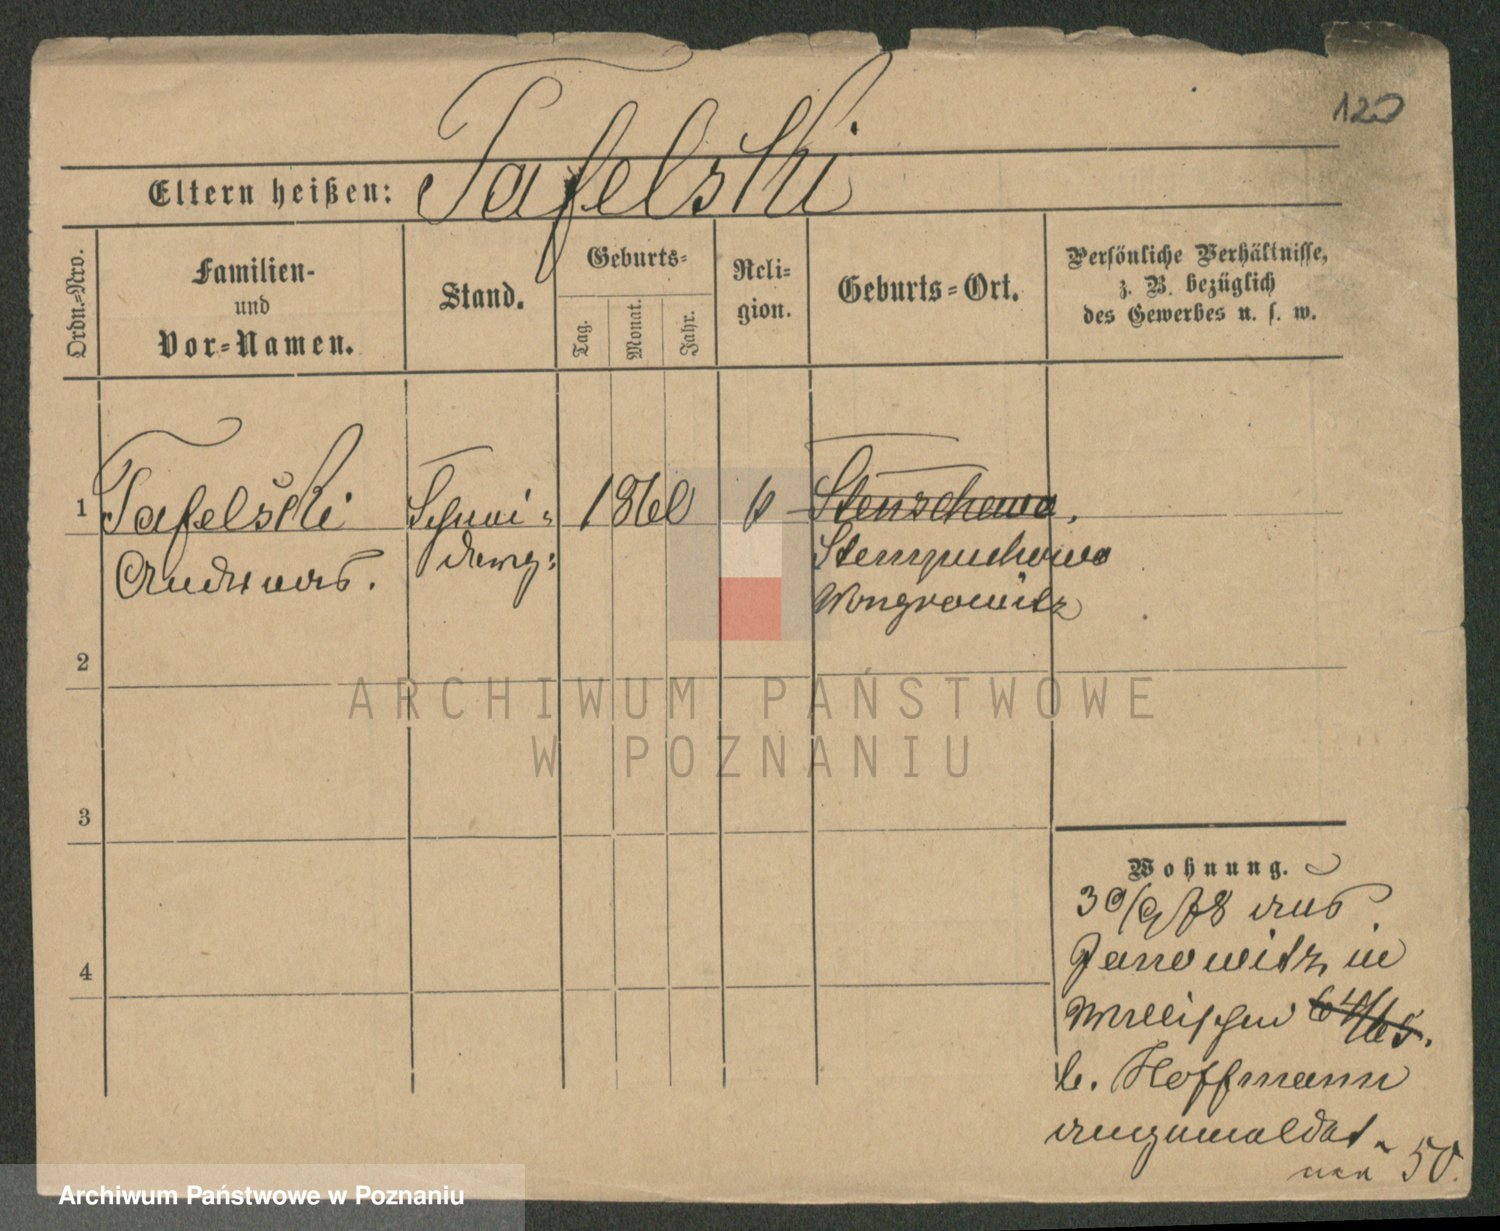 120
Eltern heißen: Tafelski
Ordn.-Nro.
Familien-
und
Vor-Namen.
Stand.
Geburts-
Tag.
Monat.
Jahr.
Reli-
gion.
Geburts-Ort.
Persönliche Verhältnisse,
z. B. bezüglich
des Gewerbes u. s. w.
1 Tafelski Schnei- 1860 Stenschewo.
Andreas. Stempuchowo
Wongrowitz
2
ARCHIWUM PAŃSTWOWE
W POZNANIU
3
Wohnung.
30/9 78 aus
4
Janowitz in
Wallischei 64/65.
b. Hoffmann
angemeldet.
50.
Archiwum Państwowe w Poznaniu